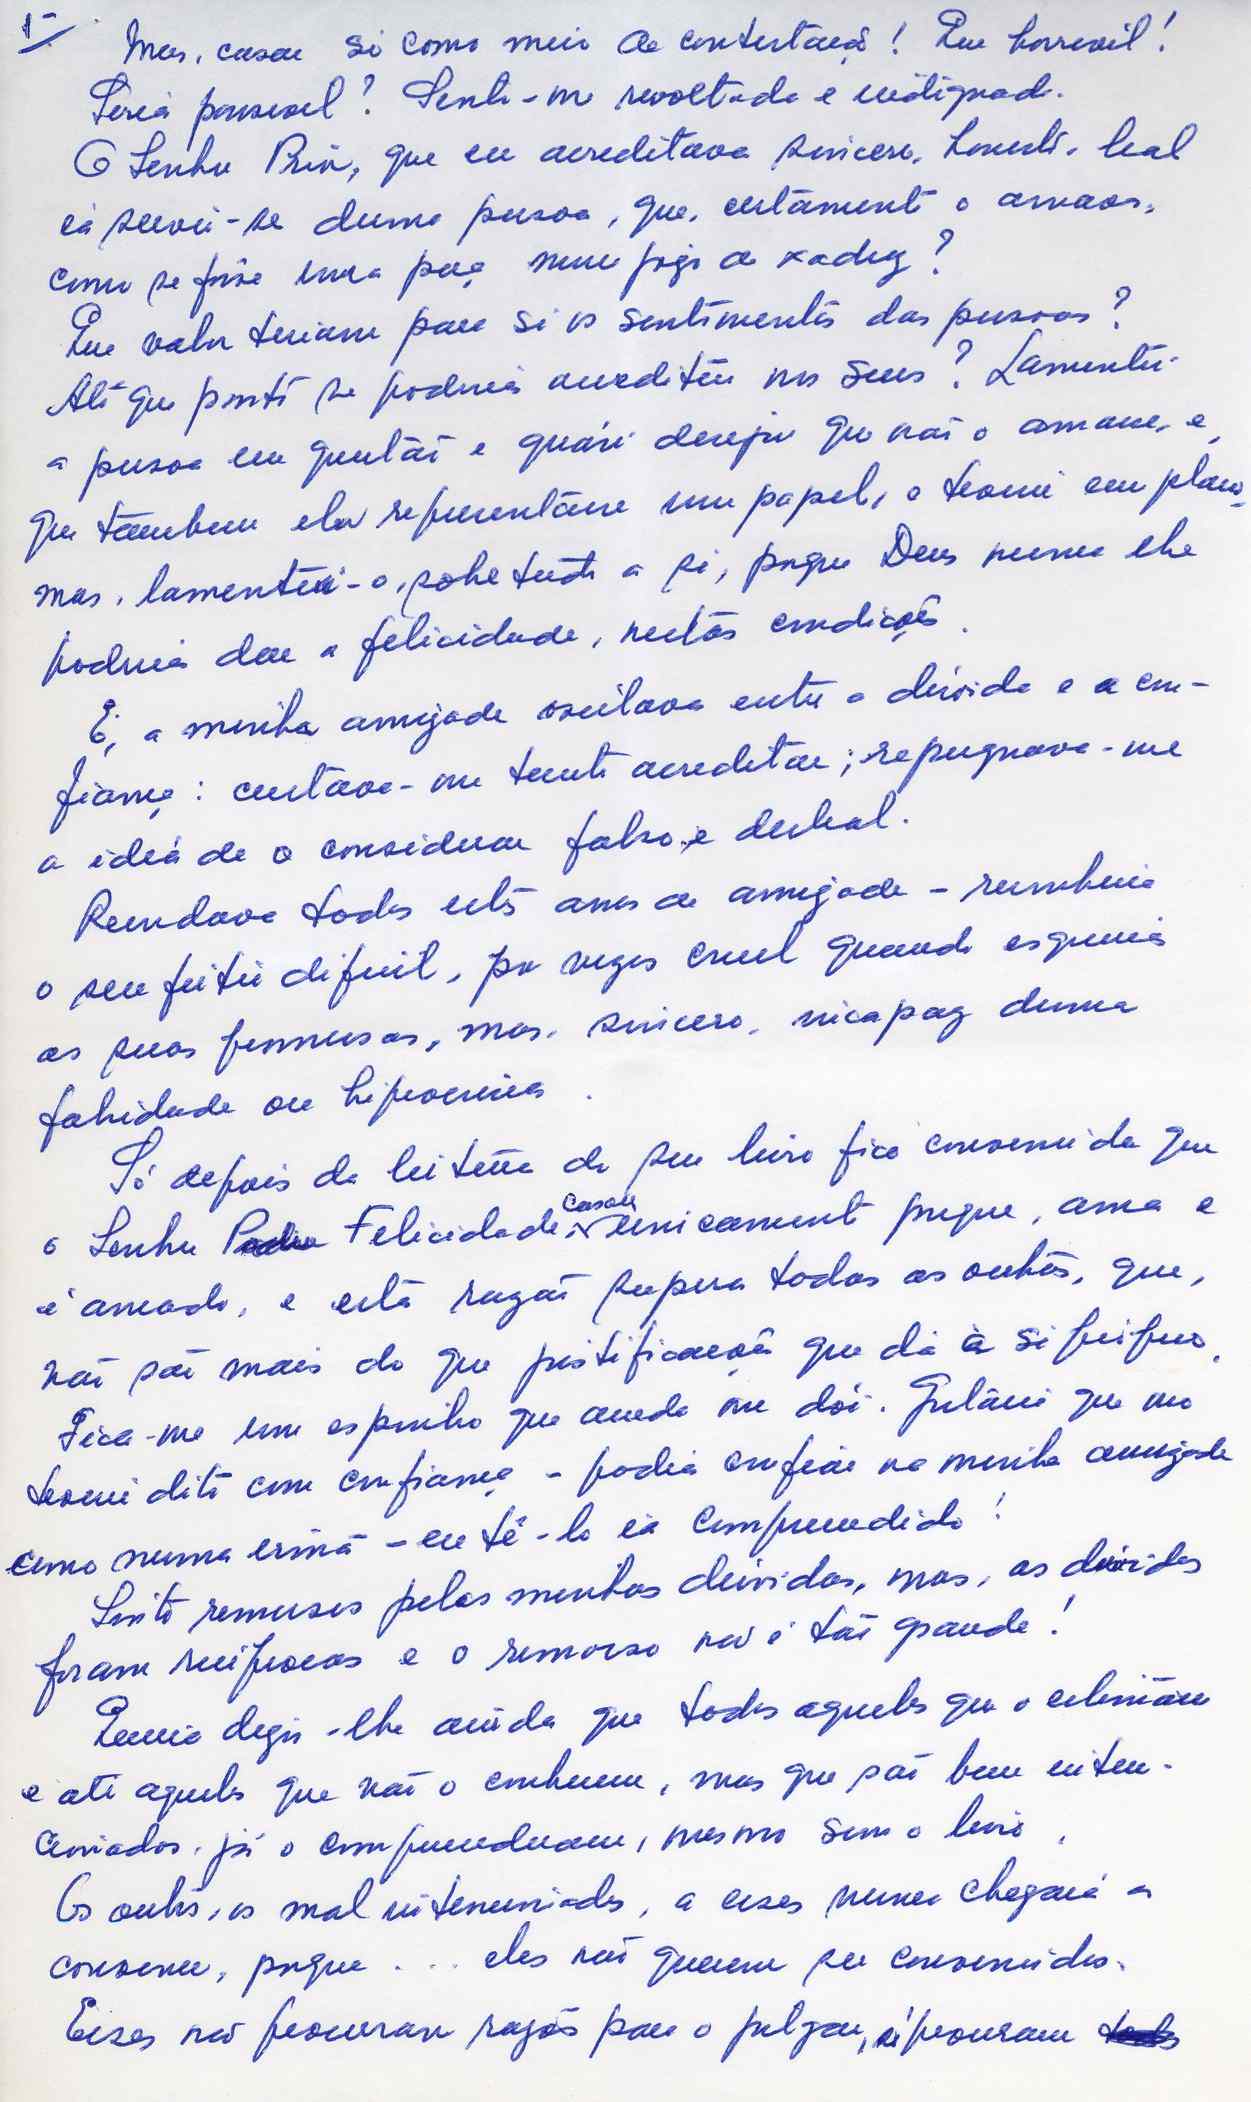 1-
Mas, casar só como meio de contestação! Que horrível!
Seria possível? Senti-me revoltada e indignada.
O Senhor Prior, que eu acreditava sincero, honesto, leal
ia servir-se duma pessoa, que, certamente o amava,
como se fôsse uma peça num jogo de xadrez?
Que valor teriam para si os sentimentos das pessoas?
Até que ponto se poderia acreditar nos seus? Lamentei
a pessoa em questão e quási desejei que não o amasse, e,
que também ela representasse um papel, o traisse em pleno,
mas, lamentei-o, sobretudo a si, porque Deus nunca lhe
poderia dar a felicidade, nestas condições.
E, a minha amizade oscilava entre a dúvida e a con-
fiança: custava-me tanto acreditar; repugnava-me
a ideia de o considerar falso e desleal.
Recordava todos estes anos de amizade - reconhecia
o seu feitio difícil, por vezes cruel quando esquecia
as suas promessas, mas, sincero, incapaz duma
falsidade ou hipocrisia.
Só depois da leitura do seu livro fico convencida que
o Senhor Padre Felicidade, casou unicamente porque, ama e
é amado, e esta razão supera todas as outras, que,
não são mais do que justificação que dá a si próprio.
Fica-me um espinho que ainda me dói. Gostaria que mo
tivesse dito com confiança - podia confiar na minha amizade
como numa irmã - eu tê-lo ia compreendido!
Sinto remorsos pelas minhas dúvidas, mas, as dúvidas
foram recíprocas e o remorso não é tão grande!
Queria dizer-lhe ainda que todos aqueles que o estimam
e até aqueles que não o conhecem, mas que são bem inten-
cionados, já o compreenderam, mesmo sem o livro.
Os outros, os mal intencionados, a esses nunca chegará a
convencer, porque ... eles não querem ser convencidos.
Esses não procuram razões para o julgar, só procuram